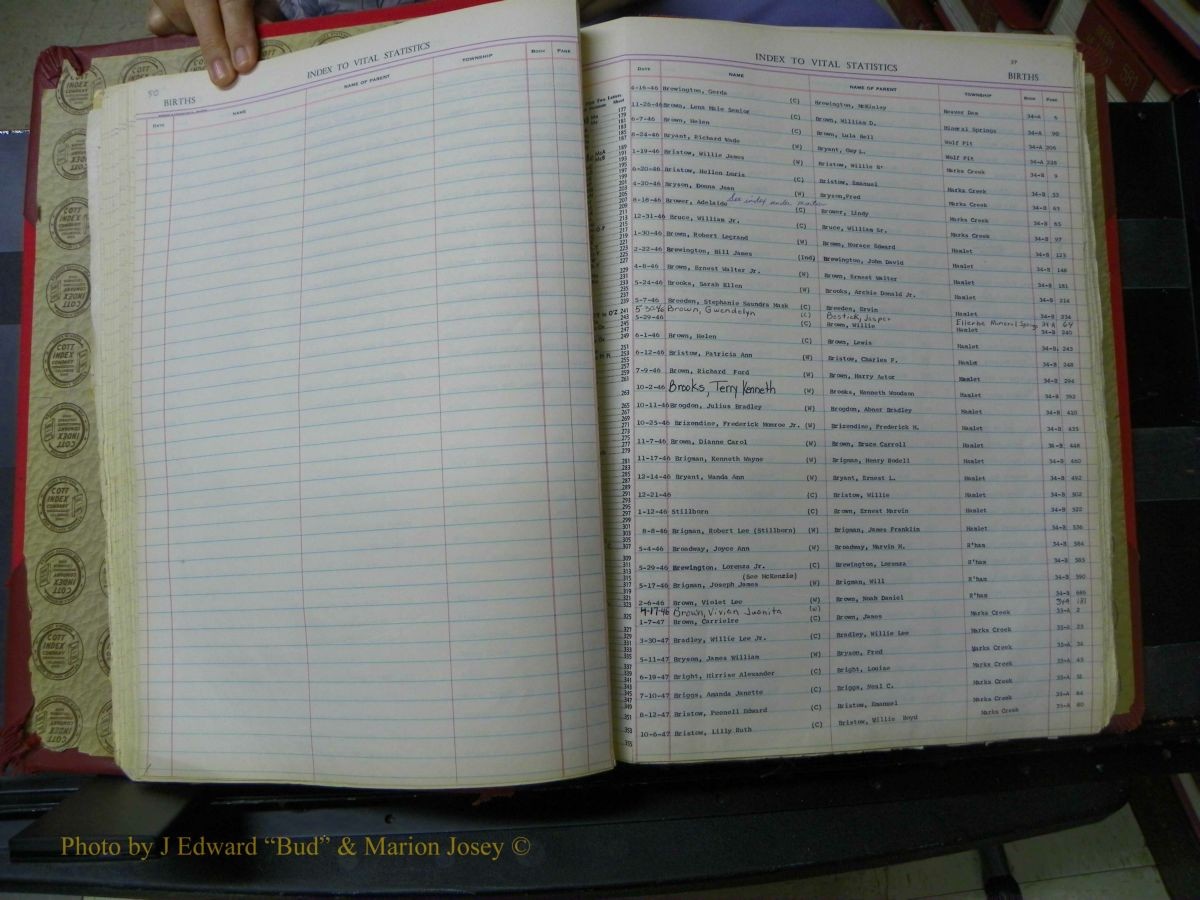 50
INDEX TO VITAL STATISTICS
BIRTHS
DATE NAME NAME OF PARENT TOWNSHIP BOOK PAGE
INDEX TO VITAL STATISTICS
BIRTHS
DATE NAME NAME OF PARENT TOWNSHIP BOOK PAGE
4-16-46 Brewington, Gerda (C) Brewington, McKinley Beaver Dam 34-A 5
11-26-46 Brown, Lena Mble Senior (C) Brown, William D. Mineral Springs 34-A 90
6-7-46 Brown, Helen (C) Brown, Lula Bell Wolf Pit 34-A 206
8-24-46 Bryant, Richard Wade (W) Bryant, Guy L. Wolf Pit 34-A 228
1-19-46 Bristow, Willie James (W) Bristow, Willie Marks Creek 34-B 9
6-20-46 Bristow, Hellen Doris (C) Bristow, Emanuel Marks Creek 34-B 53
4-30-46 Bryson, Donna Jean (W) Bryson, Fred Marks Creek 34-B 63
8-16-46 Brower, Adelaide See index under (C) Brower, Lindy Marks Creek 34-B 85
12-31-46 Bruce, William Jr. (C) Bruce, William Sr. Marks Creek 34-B 97
1-30-46 Brown, Robert Legrand (W) Brown, Horace Edward Hamlet 34-B 123
2-22-46 Brewington, Bill James (Ind) Brewington, John David Hamlet 34-B 148
4-8-46 Brown, Ernest Walter Jr. (W) Brown, Ernest Walter Hamlet 34-B 181
5-24-46 Brooks, Sarah Ellen (W) Brooks, Archie Donald Jr. Hamlet 34-B 214
5-7-46 Breeden, Stephanie Saundra Mask (C) Breeden, Ervin Hamlet 34-B 234
5-30-46 Brown, Gwendolyn (C) Bostick, Jasper Ellerbe Mineral Springs 34-A 64
5-29-46 (C) Brown, Willie Hamlet 34-B 240
6-1-46 Brown, Helen (C) Brown, Lewis Hamlet 34-B 243
6-12-46 Bristow, Patricia Ann (W) Bristow, Charles F. Hamlet 34-B 248
7-9-46 Brown, Richard Ford (W) Brown, Harry Astor Hamlet 34-B 294
10-2-46 Brooks, Terry Kenneth (W) Brooks, Kenneth Woodson Hamlet 34-B 392
10-11-46 Brogdon, Julius Bradley (W) Brogdon, Abner Bradley Hamlet 34-B 420
10-25-46 Brizendine, Frederick Monroe Jr. (W) Brizendine, Frederick M. Hamlet 34-B 435
11-7-46 Brown, Dianne Carol (W) Brown, Bruce Carroll Hamlet 34-B 448
11-17-46 Brigman, Kenneth Wayne (W) Brigman, Henry Bodell Hamlet 34-B 460
12-14-46 Bryant, Wanda Ann (W) Bryant, Ernest L. Hamlet 34-B 492
12-21-46 (C) Bristow, Willie Hamlet 34-B 502
1-12-46 Stillborn (C) Brown, Ernest Marvin Hamlet 34-B 522
8-8-46 Brigman, Robert Lee (Stillborn) (W) Brigman, James Franklin Hamlet 34-B 536
5-4-46 Broadway, Joyce Ann (W) Broadway, Marvin H. R'ham 34-B 584
5-29-46 Brewington, Lorenza Jr. (C) Brewington, Lorenza R'ham 34-B 585
(See McKenzie)
5-17-46 Brigman, Joseph James (W) Brigman, Will R'ham 34-B 590
2-6-46 Brown, Violet Lee (W) Brown, Noah Daniel R'ham 34-B 686
4-17-46 Brown, Vivian Juanita (W) 34A 181
1-7-47 Brown, Carrielre (C) Brown, James Marks Creek 35-A 2
3-30-47 Bradley, Willie Lee Jr. (C) Bradley, Willie Lee Marks Creek 35-A 23
5-11-47 Bryson, James William (W) Bryson, Fred Marks Creek 35-A 34
6-19-47 Bright, Hirrise Alexander (C) Bright, Louise Marks Creek 35-A 43
7-10-47 Briggs, Amanda Janette (C) Briggs, Neal C. Marks Creek 35-A 51
8-12-47 Bristow, Peonell Edward (C) Bristow, Emanuel Marks Creek 35-A 64
10-6-47 Bristow, Lilly Ruth (C) Bristow, Willie Boyd Marks Creek 35-A 80
COTT INDEX COMPANY
Photo by J Edward “Bud” & Marion Josey ©